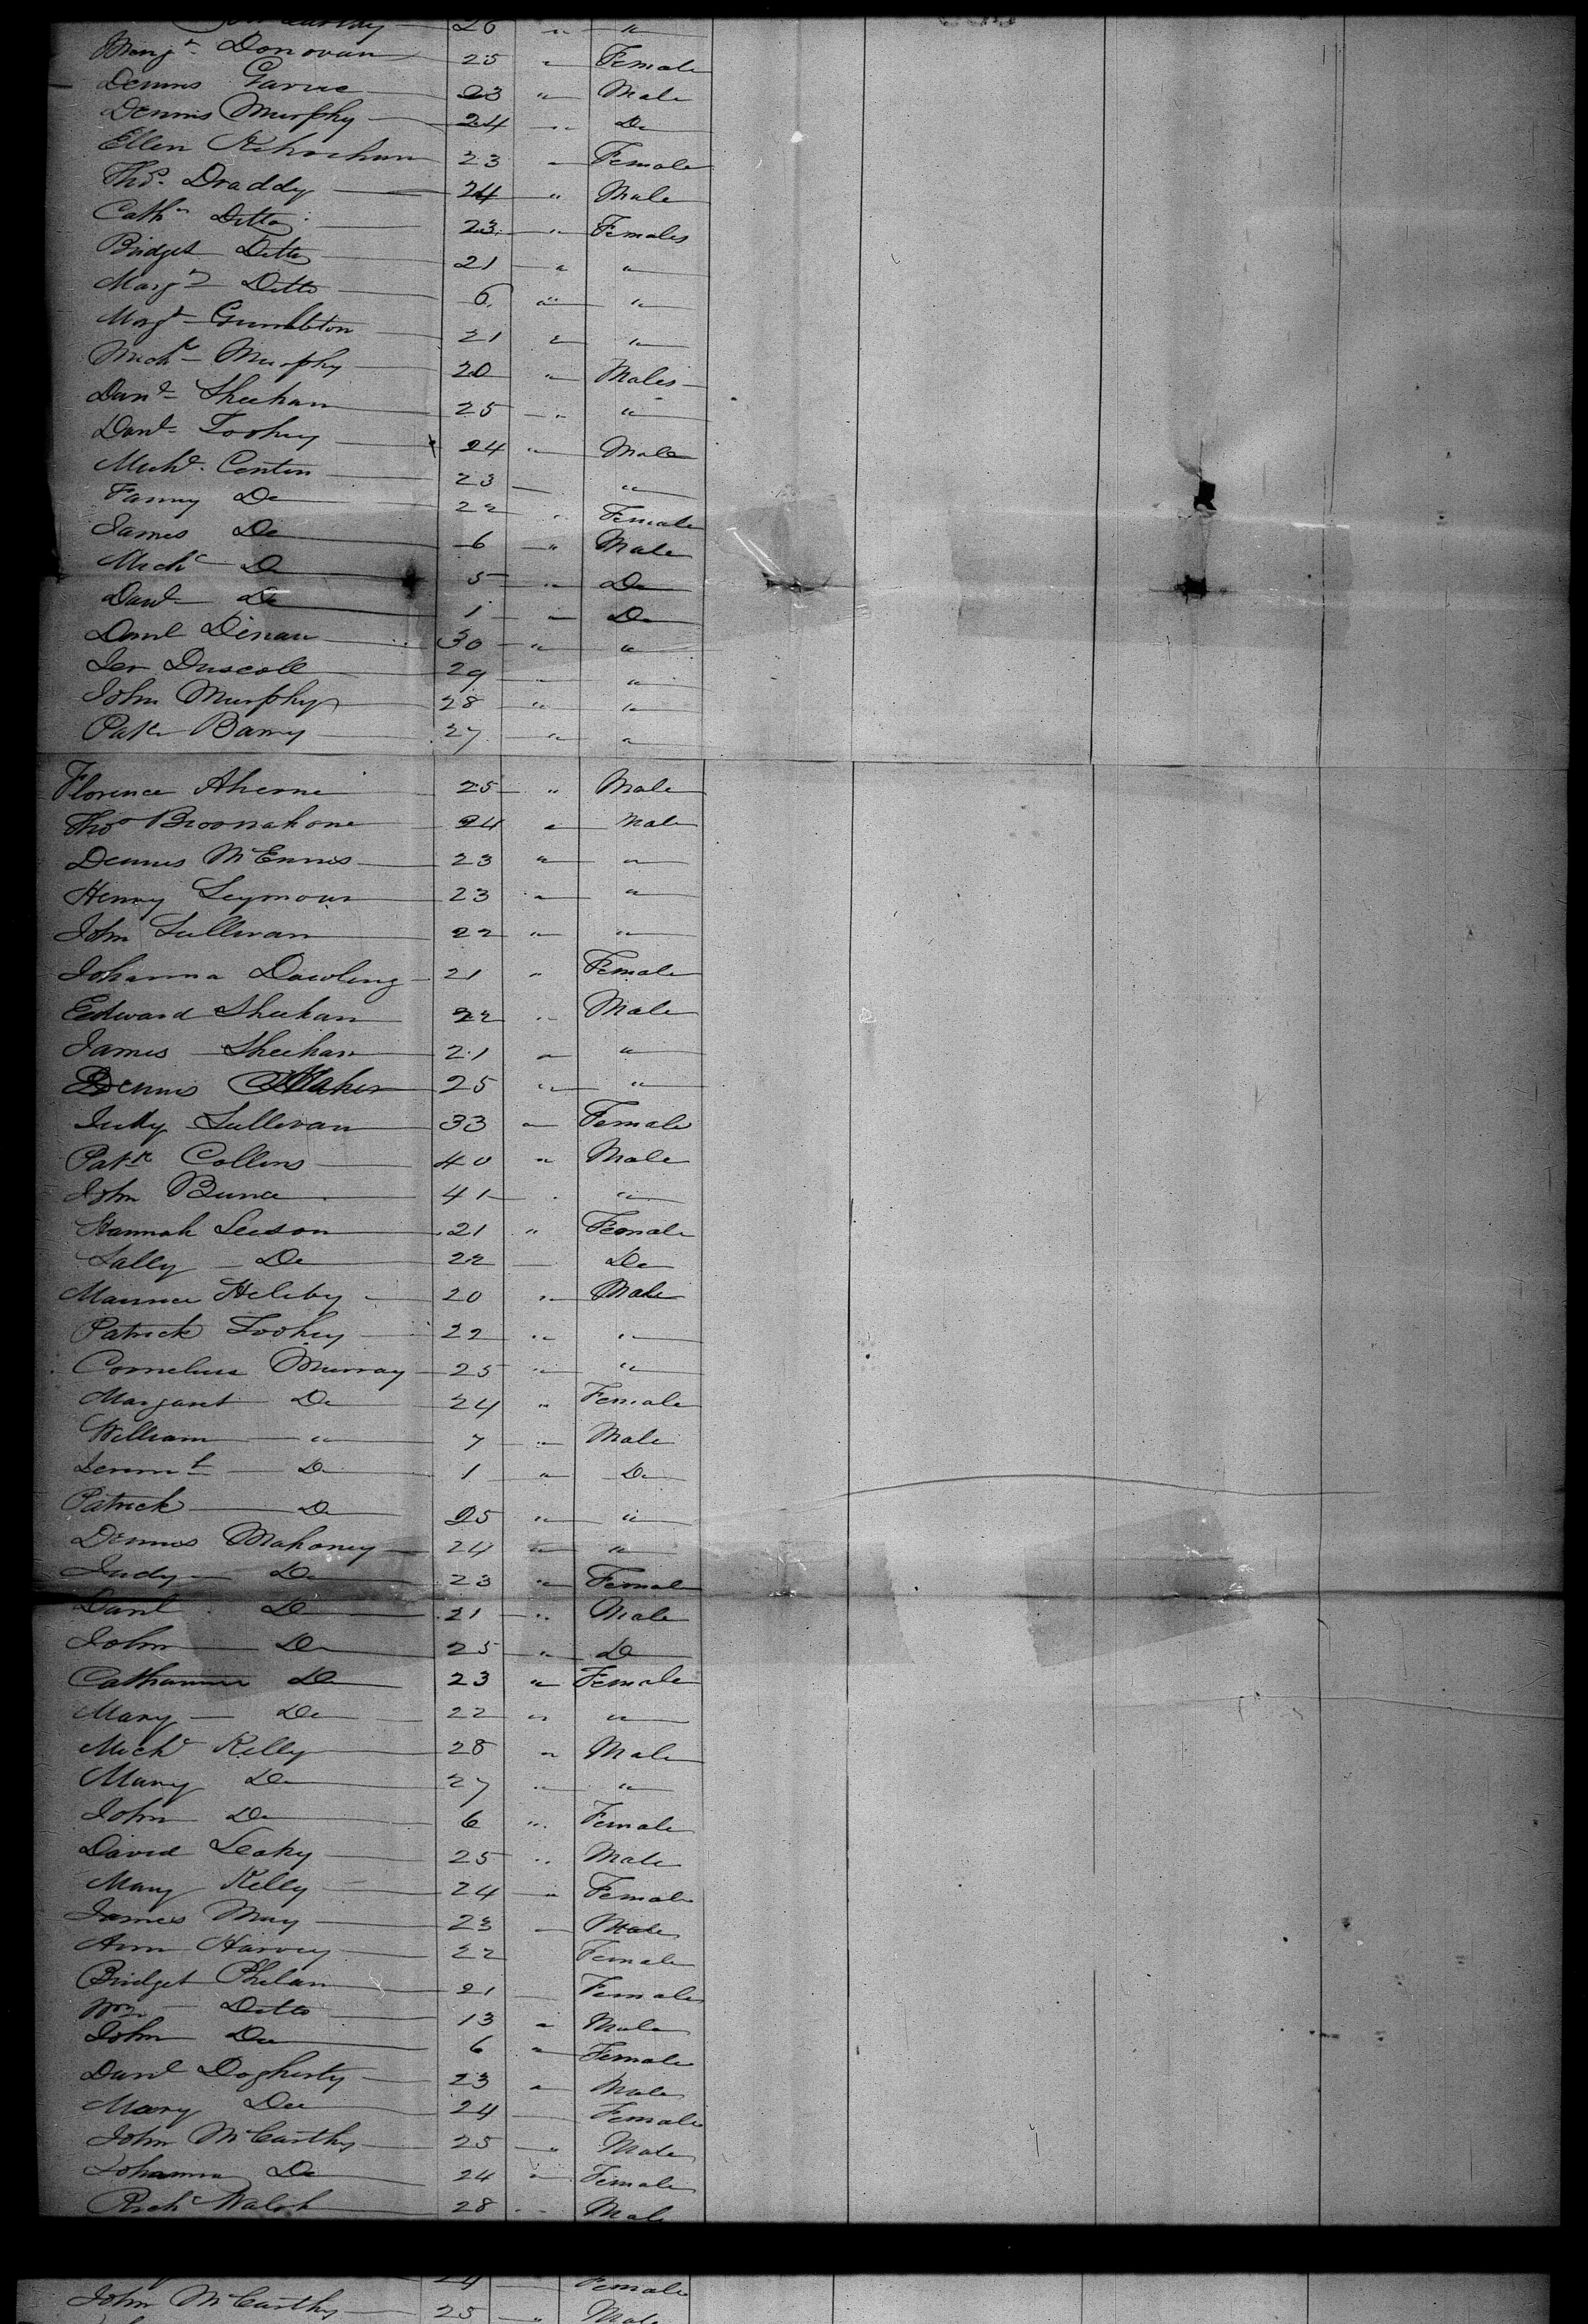 26 " "
Marg^t Donovan 25 " Female
Dennis 23 " Male
Dennis Murphy 24 " Do
Ellen 23 " Female
Tho^s Draddy 24 " Male
Cath^n Ditto 23 " Females
Bridget Ditto 21 " "
Marg^t Ditto 6 " "
Marg^t Gumbleton 21 " "
Mich^l Murphy 20 " Males
Dan^l Sheehan 25 " "
Dan^l Toohey 24 " Male
Mich^l Conten 23 "
Fanny Do 22 " Female
James Do 6 " Male
Mich^l Do 5 " Do
Dan^l Do 1 " Do
Danl Dinan 30 " "
Jer Driscoll 29 " "
John Murphy 28 " "
Pat^k Barry 27 " "
Florence Aherne 25 " Male
Tho^s Brosnahone 24 " Male
Dennis McEnnis 23 " "
Henry Seymour 23 " "
John Sullivan 22 " "
Johanna Dawling 21 " Female
Edward Sheehan 22 " Male
James Sheehan 21 " "
Dennis 25 " "
Judy Sullivan 33 " Female
Pat^k Collins 40 " Male
John Bunce 41 " "
Hannah Leeson 21 " Female
Sally Do 22 Do
Maurice 20 " Male
Patrick Toohey 22 " "
Cornelius Murray 25 " "
Margaret Do 24 " Female
William " 7 " Male
Jerem^h Do 1 " Do
Patrick Do 25 " "
Dennis Mahoney 24 " "
Judy Do 23 " Female
Danl Do 21 " Male
John Do 25 " Do
Catharine Do 23 " Female
Mary Do 22 " "
Mich^l Kelly 28 " Male
Mary Do 27 " "
John Do 6 " Female
David Leahy 25 " Male
Mary Kelly 24 " Female
James May 23 Male
Ann Harvey 22 Female
Bridget Phelan 21 Female
Wm Ditto 13 " Male
John Do 6 " Female
Danl Dogherty 23 " Male
Mary Do 24 Female
John McCarthy 25 " Male
Johanna Do 24 " Female
Rich^d Walsh 28 " Male
24 Female
John McCarthy 25 " Male